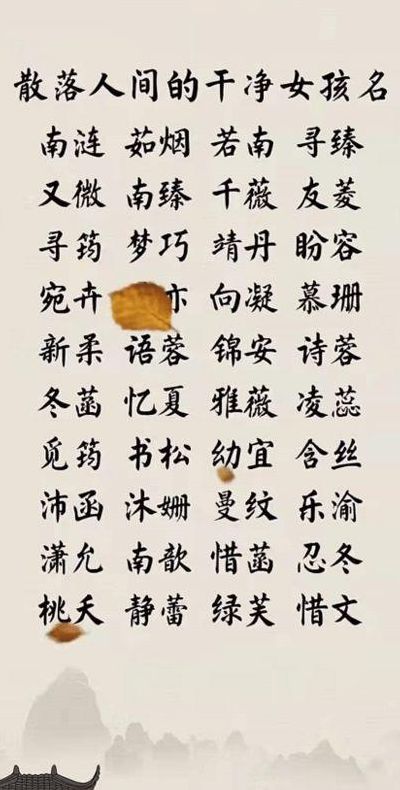 散落人间的干净女孩名
南涟 茹烟 若南 寻臻
又微 南臻 千薇 友菱
寻筠 梦巧 靖丹 盼容
宛卉 亦 向凝 慕珊
新柔 语蓉 锦安 诗蓉
冬菡 忆夏 雅薇 凌蕊
觅筠 书松 幼宜 含丝
沛函 沐姗 曼纹 乐渝
潇允 南歆 惜菡 忍冬
桃夭 静蕾 绿芙 惜文